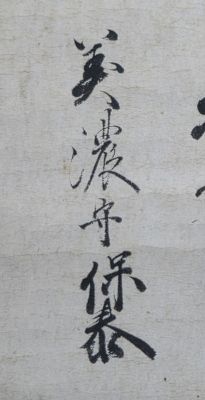 美濃守保泰